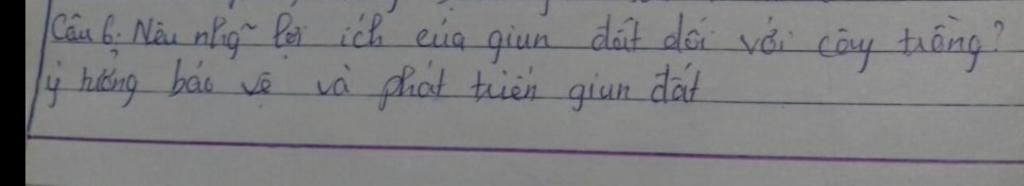 Câu 6: Nêu nhg~ lợi ích của giun đất đối với cây trồng?
ý tưởng bảo vệ và phát triển giun đất